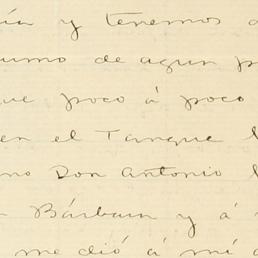 ía y tenemos
umo de agua p
que poco á poco
en el Tanque l
no Don Antonio l
Bárbara y á
me dió á mí